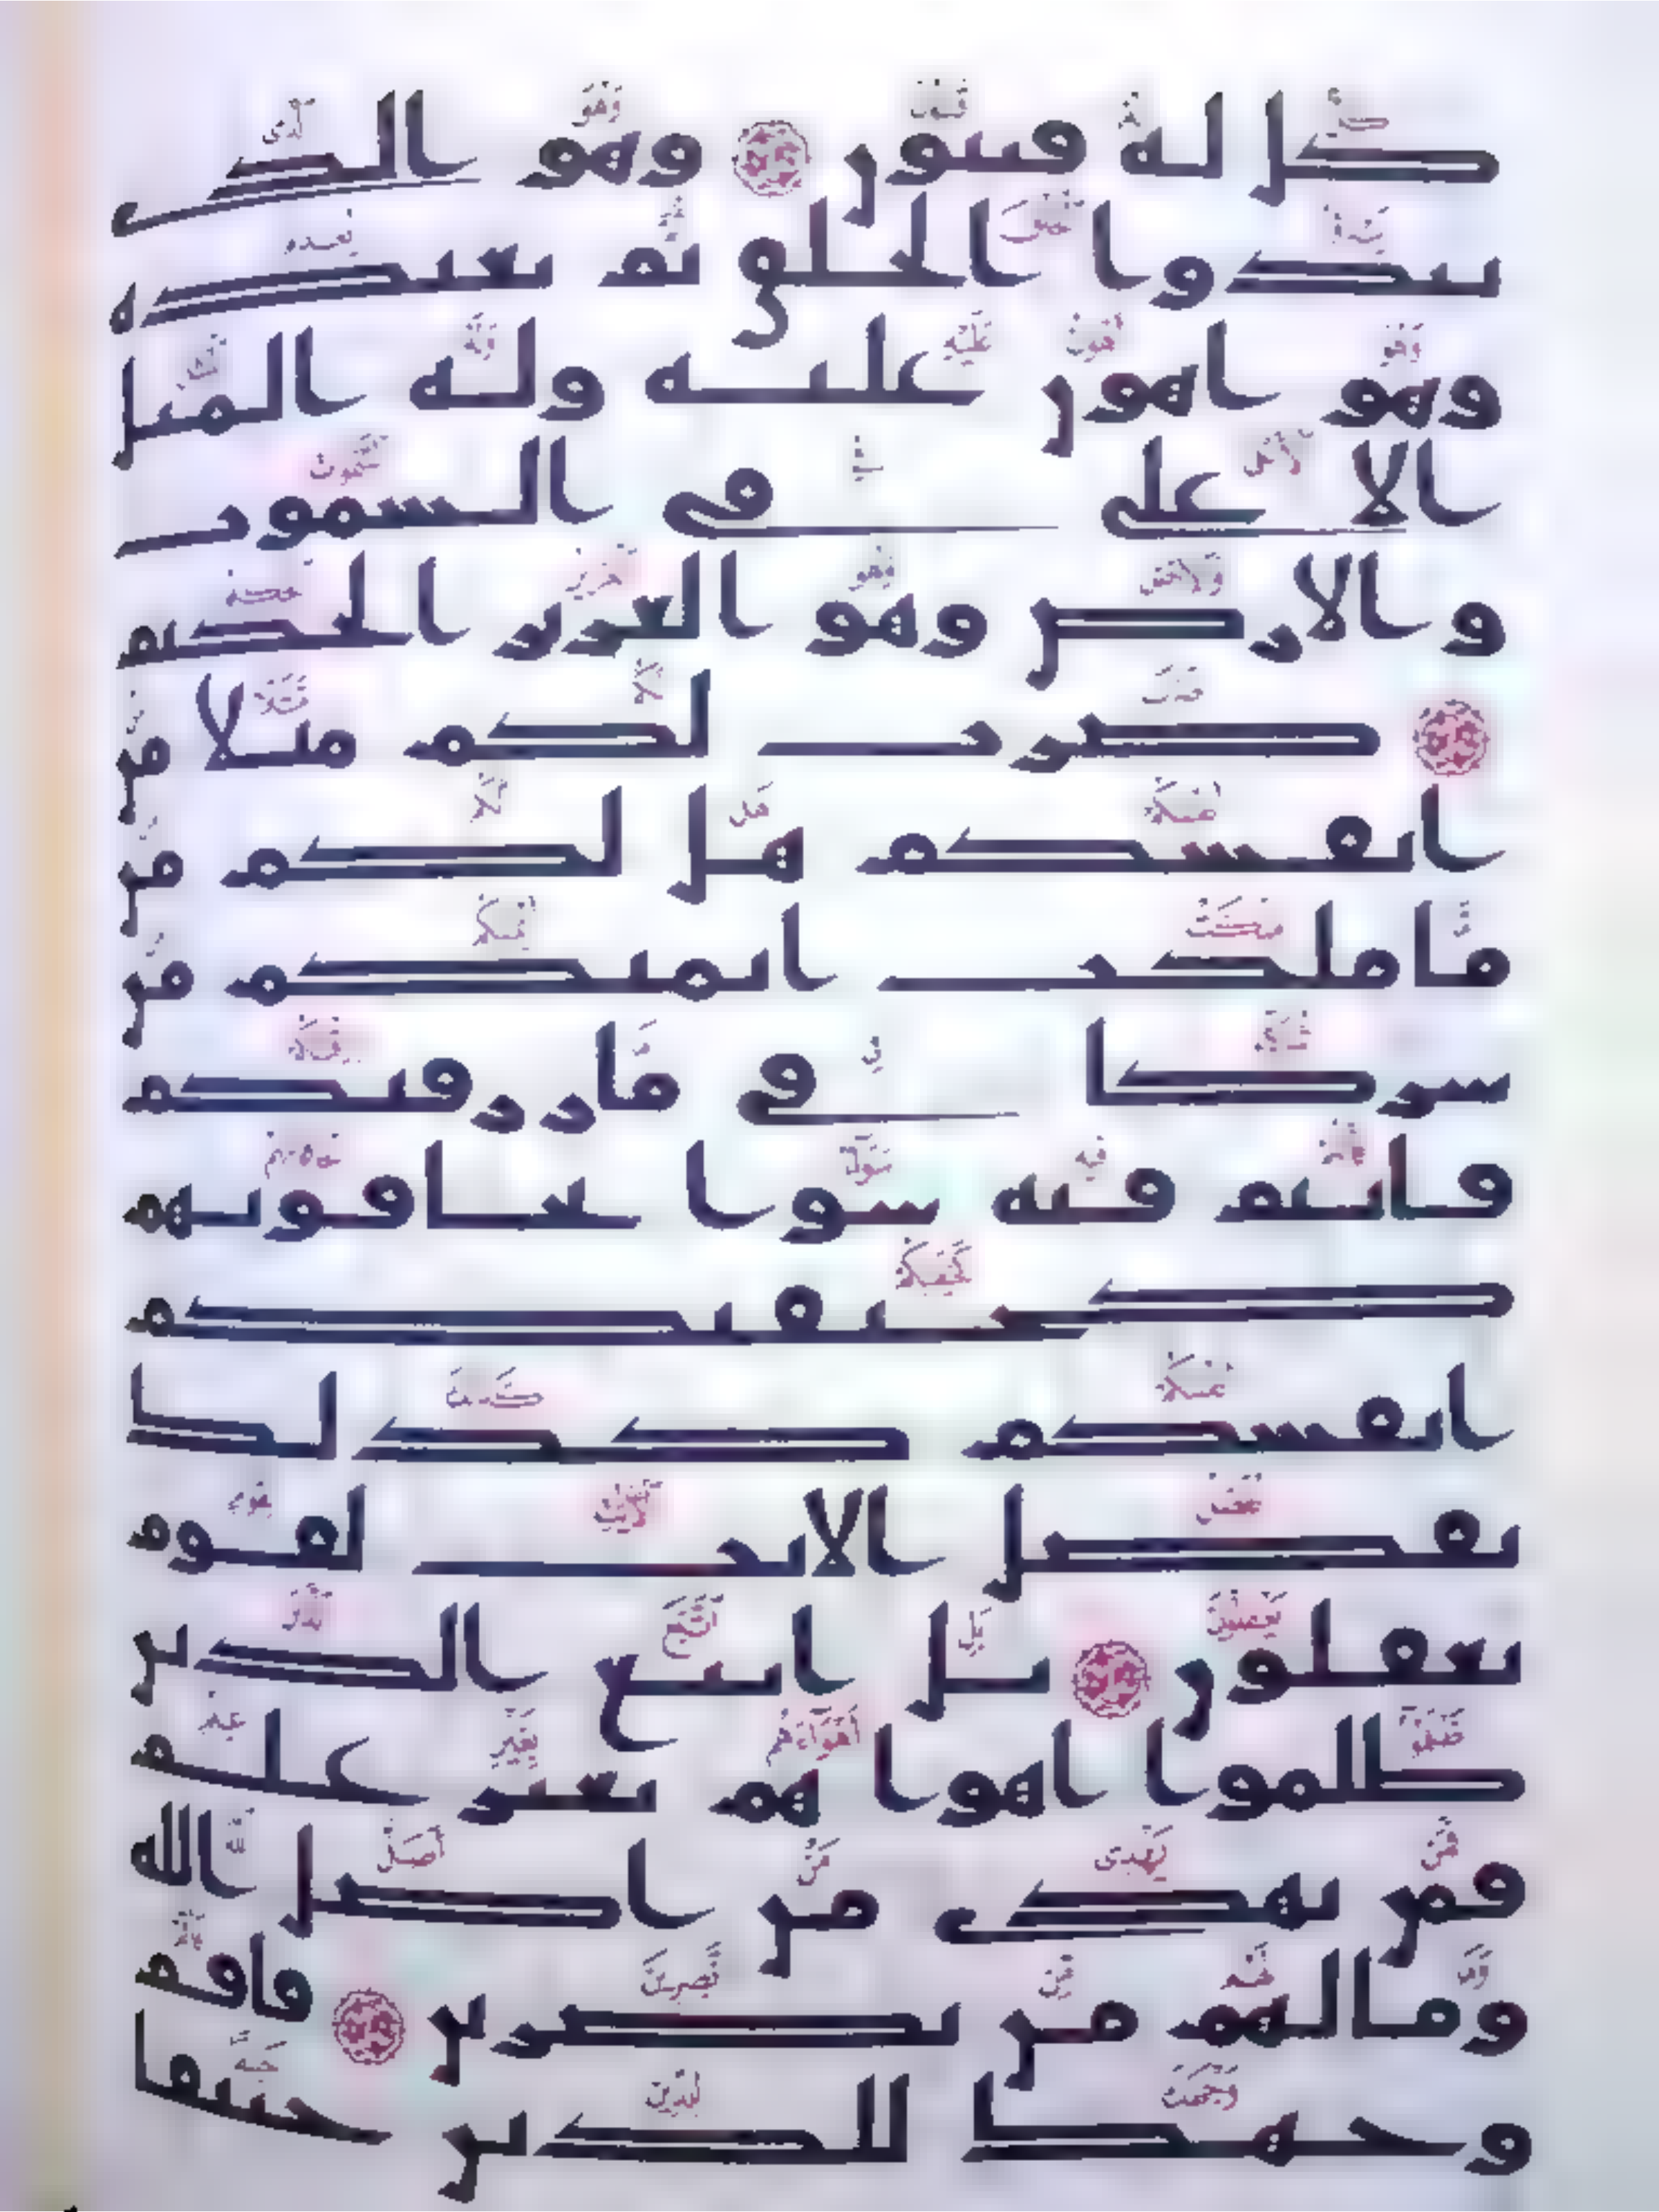 كل له قنتون وهو الذي
يبدوا الخلق ثم يعيده
وهو اهون عليه وله المثل
الاعلى في السموت
والارض وهو العزيز الحكيم
ضرب لكم مثلا من
انفسكم هل لكم من
ما ملكت ايمنكم من
شركا في ما رزقنكم
فانتم فيه سوا تخافونهم
كخيفتكم
انفسكم كذلك
نفصل الايت لقوم
يعقلون بل اتبع الذين
ظلموا اهواهم بغير علم
فمن يهدي من اضل الله
وما لهم من نصرين فاقم
وجهك للدين حنيفا